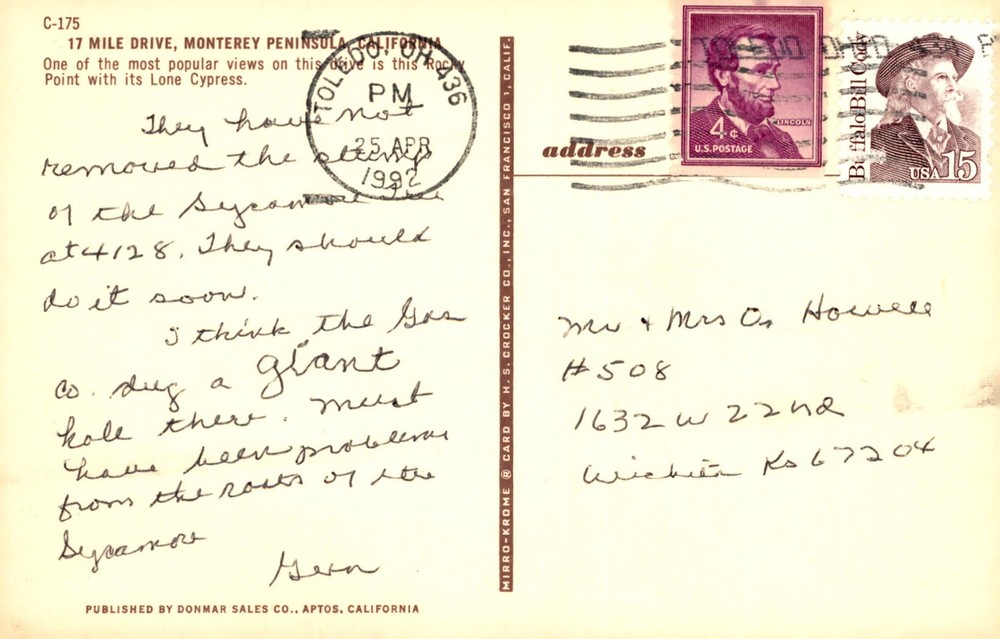 C-175
17 MILE DRIVE, MONTEREY PENINSULA, CALIFORNIA
One of the most popular views on this drive is this Rocky
Point with its Lone Cypress.
They have not
removed the stump
of the Sycamore tree
at 4128. They should
do it soon.
I think the Gas
co. dug a giant
hole there. Must
have been problems
from the roots of the
Sycamore
PUBLISHED BY DONMAR SALES CO., APTOS, CALIFORNIA
TOLEDO, OH 436
PM
25 APR
1992
MIRRO-KROME ® CARD BY H. S. CROCKER CO., INC., SAN FRANCISCO 1, CALIF.
address
LINCOLN
4¢
U.S. POSTAGE
Buffalo Bill Cody
USA 15
Mr & Mrs O. Howell
#508
1632 W 22nd
Wichita Ks 67204